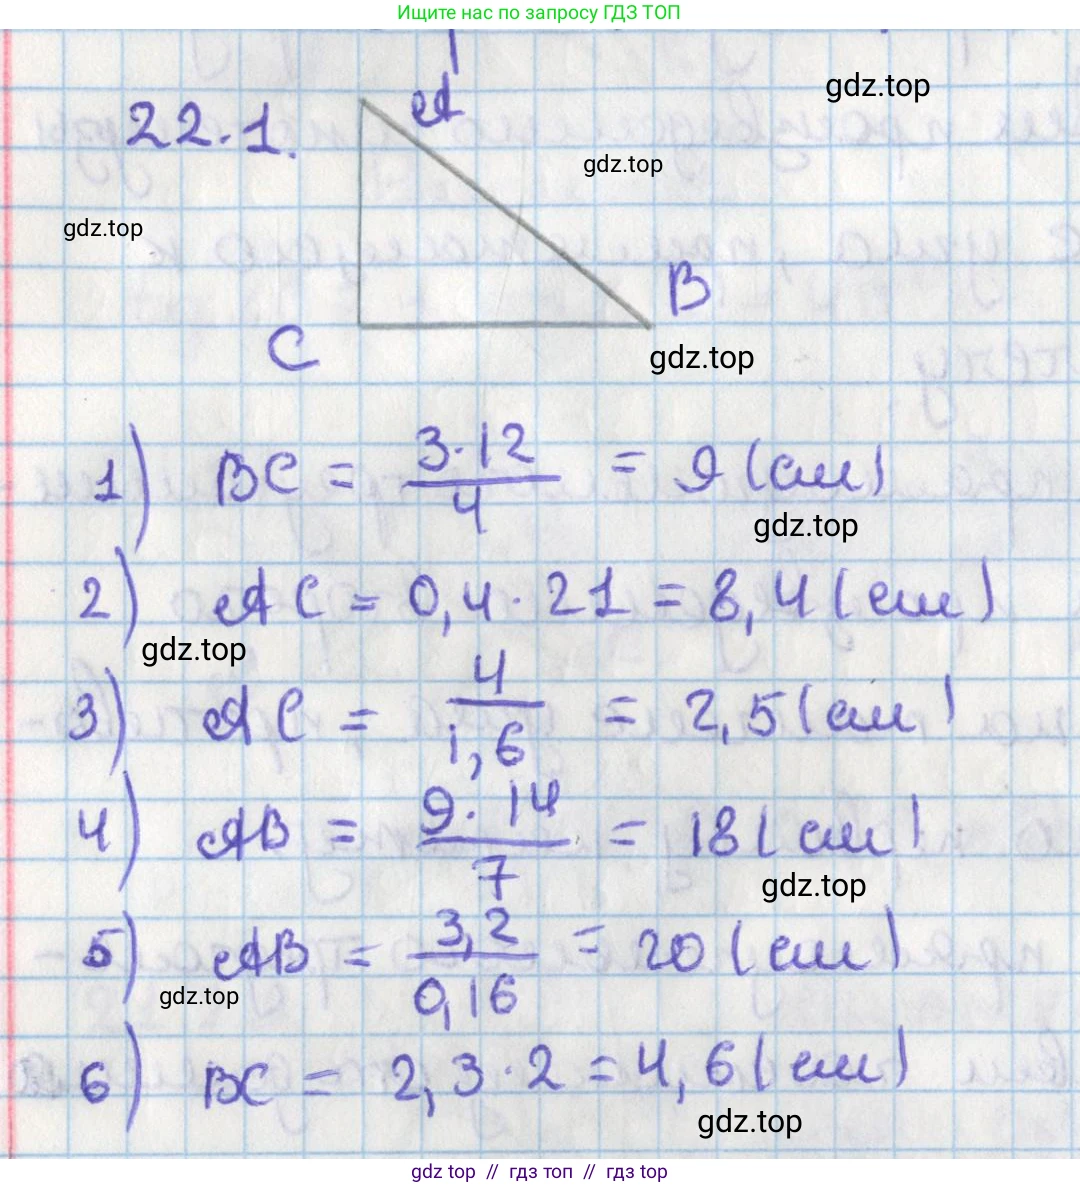 Ищите нас по запросу ГДЗ ТОП
gdz.top
22.1.
A
gdz.top
gdz.top
B
C
gdz.top
1) BC = 3·12/4 = 9 (см)
gdz.top
2) AC = 0,4·21 = 8,4 (см)
gdz.top
3) AC = 4/1,6 = 2,5 (см)
4) AB = 9·14/7 = 18 (см)
gdz.top
5) AB = 3,2/0,16 = 20 (см)
gdz.top
6) BC = 2,3·2 = 4,6 (см)
gdz.top
gdz top // гдз топ // gdz top